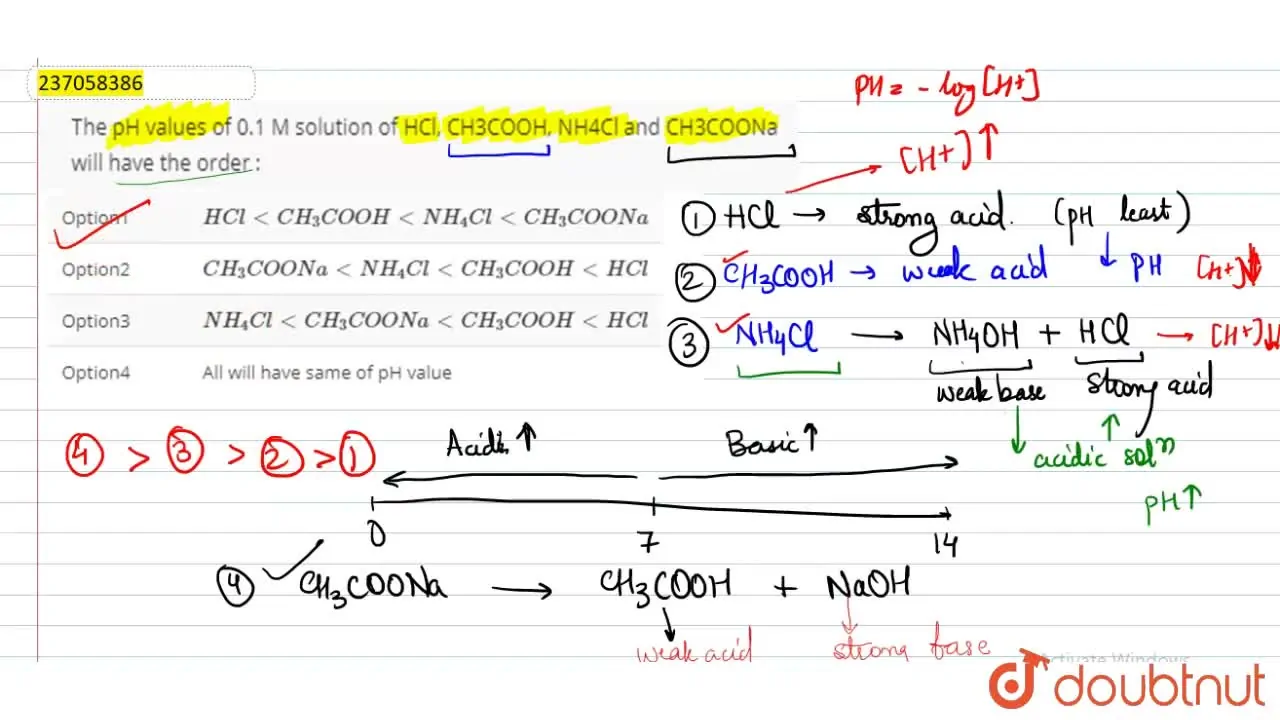 237058386
PH = - log [H+]
The pH values of 0.1 M solution of HCl, CH3COOH, NH4Cl and CH3COONa
will have the order :
[H+] ↑
Option1 HCl < CH₃COOH < NH₄Cl < CH₃COONa
① HCl → strong acid. (pH least)
Option2 CH₃COONa < NH₄Cl < CH₃COOH < HCl
② CH₃COOH → weak acid ↓ PH [H+]↓
Option3 NH₄Cl < CH₃COONa < CH₃COOH < HCl
③ NH₄Cl → NH₄OH + HCl → [H+]↓↓
Option4 All will have same of pH value
weak base strong acid
④ > ③ > ② > ①
Acidic ↑ Basic ↑
acidic solⁿ
pH ↑
0 7 14
④ CH₃COONa → CH₃COOH + NaOH
weak acid strong base
Activate Windows
doubtnut